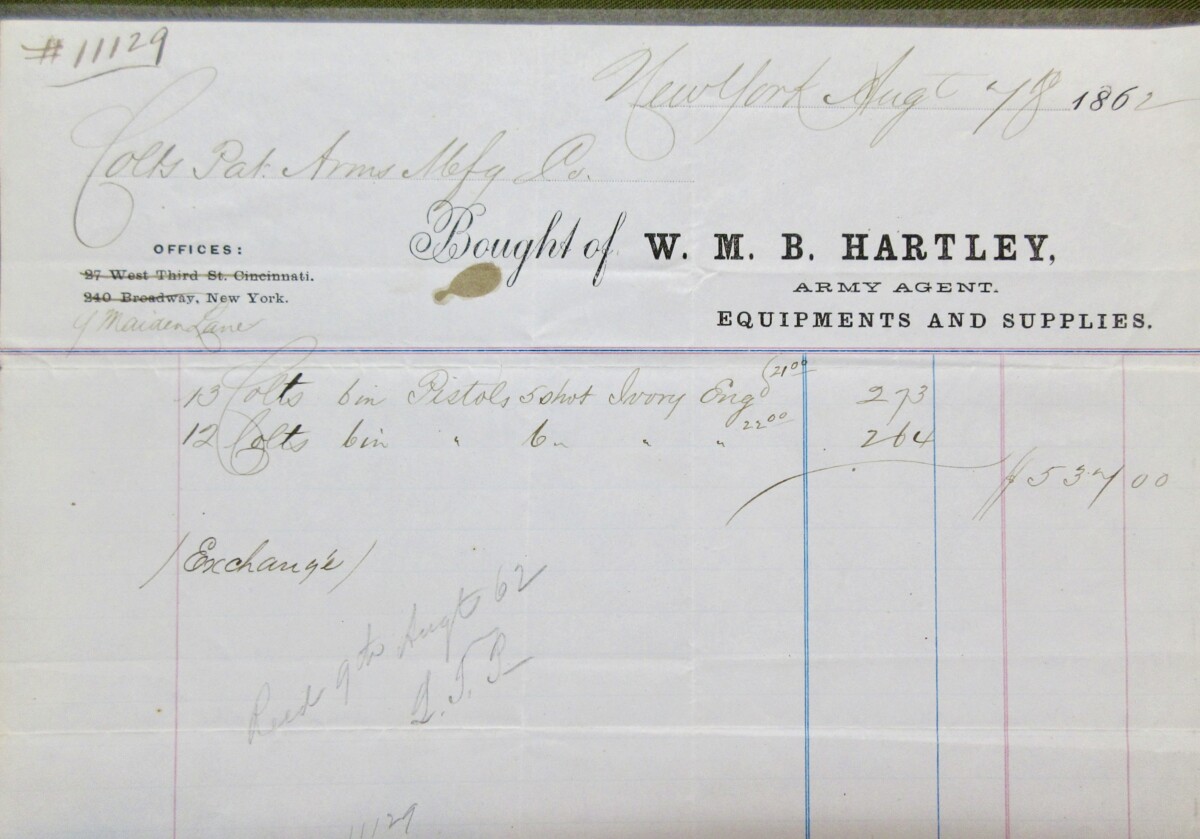 # 11129
New York Augt 7th 1862
Colts Pat. Arms Mfg Co.
Bought of W. M. B. HARTLEY,
ARMY AGENT.
EQUIPMENTS AND SUPPLIES.
OFFICES:
27 West Third St. Cincinnati.
240 Broadway, New York.
Maiden Lane
13 Colts 6 in Pistols 5 shot Ivory Engd (21 00 273
12 Colts 6 in " 6 " " " 22 00 264
$537 00
(Exchange)
Recd 9th Augt 62
11129